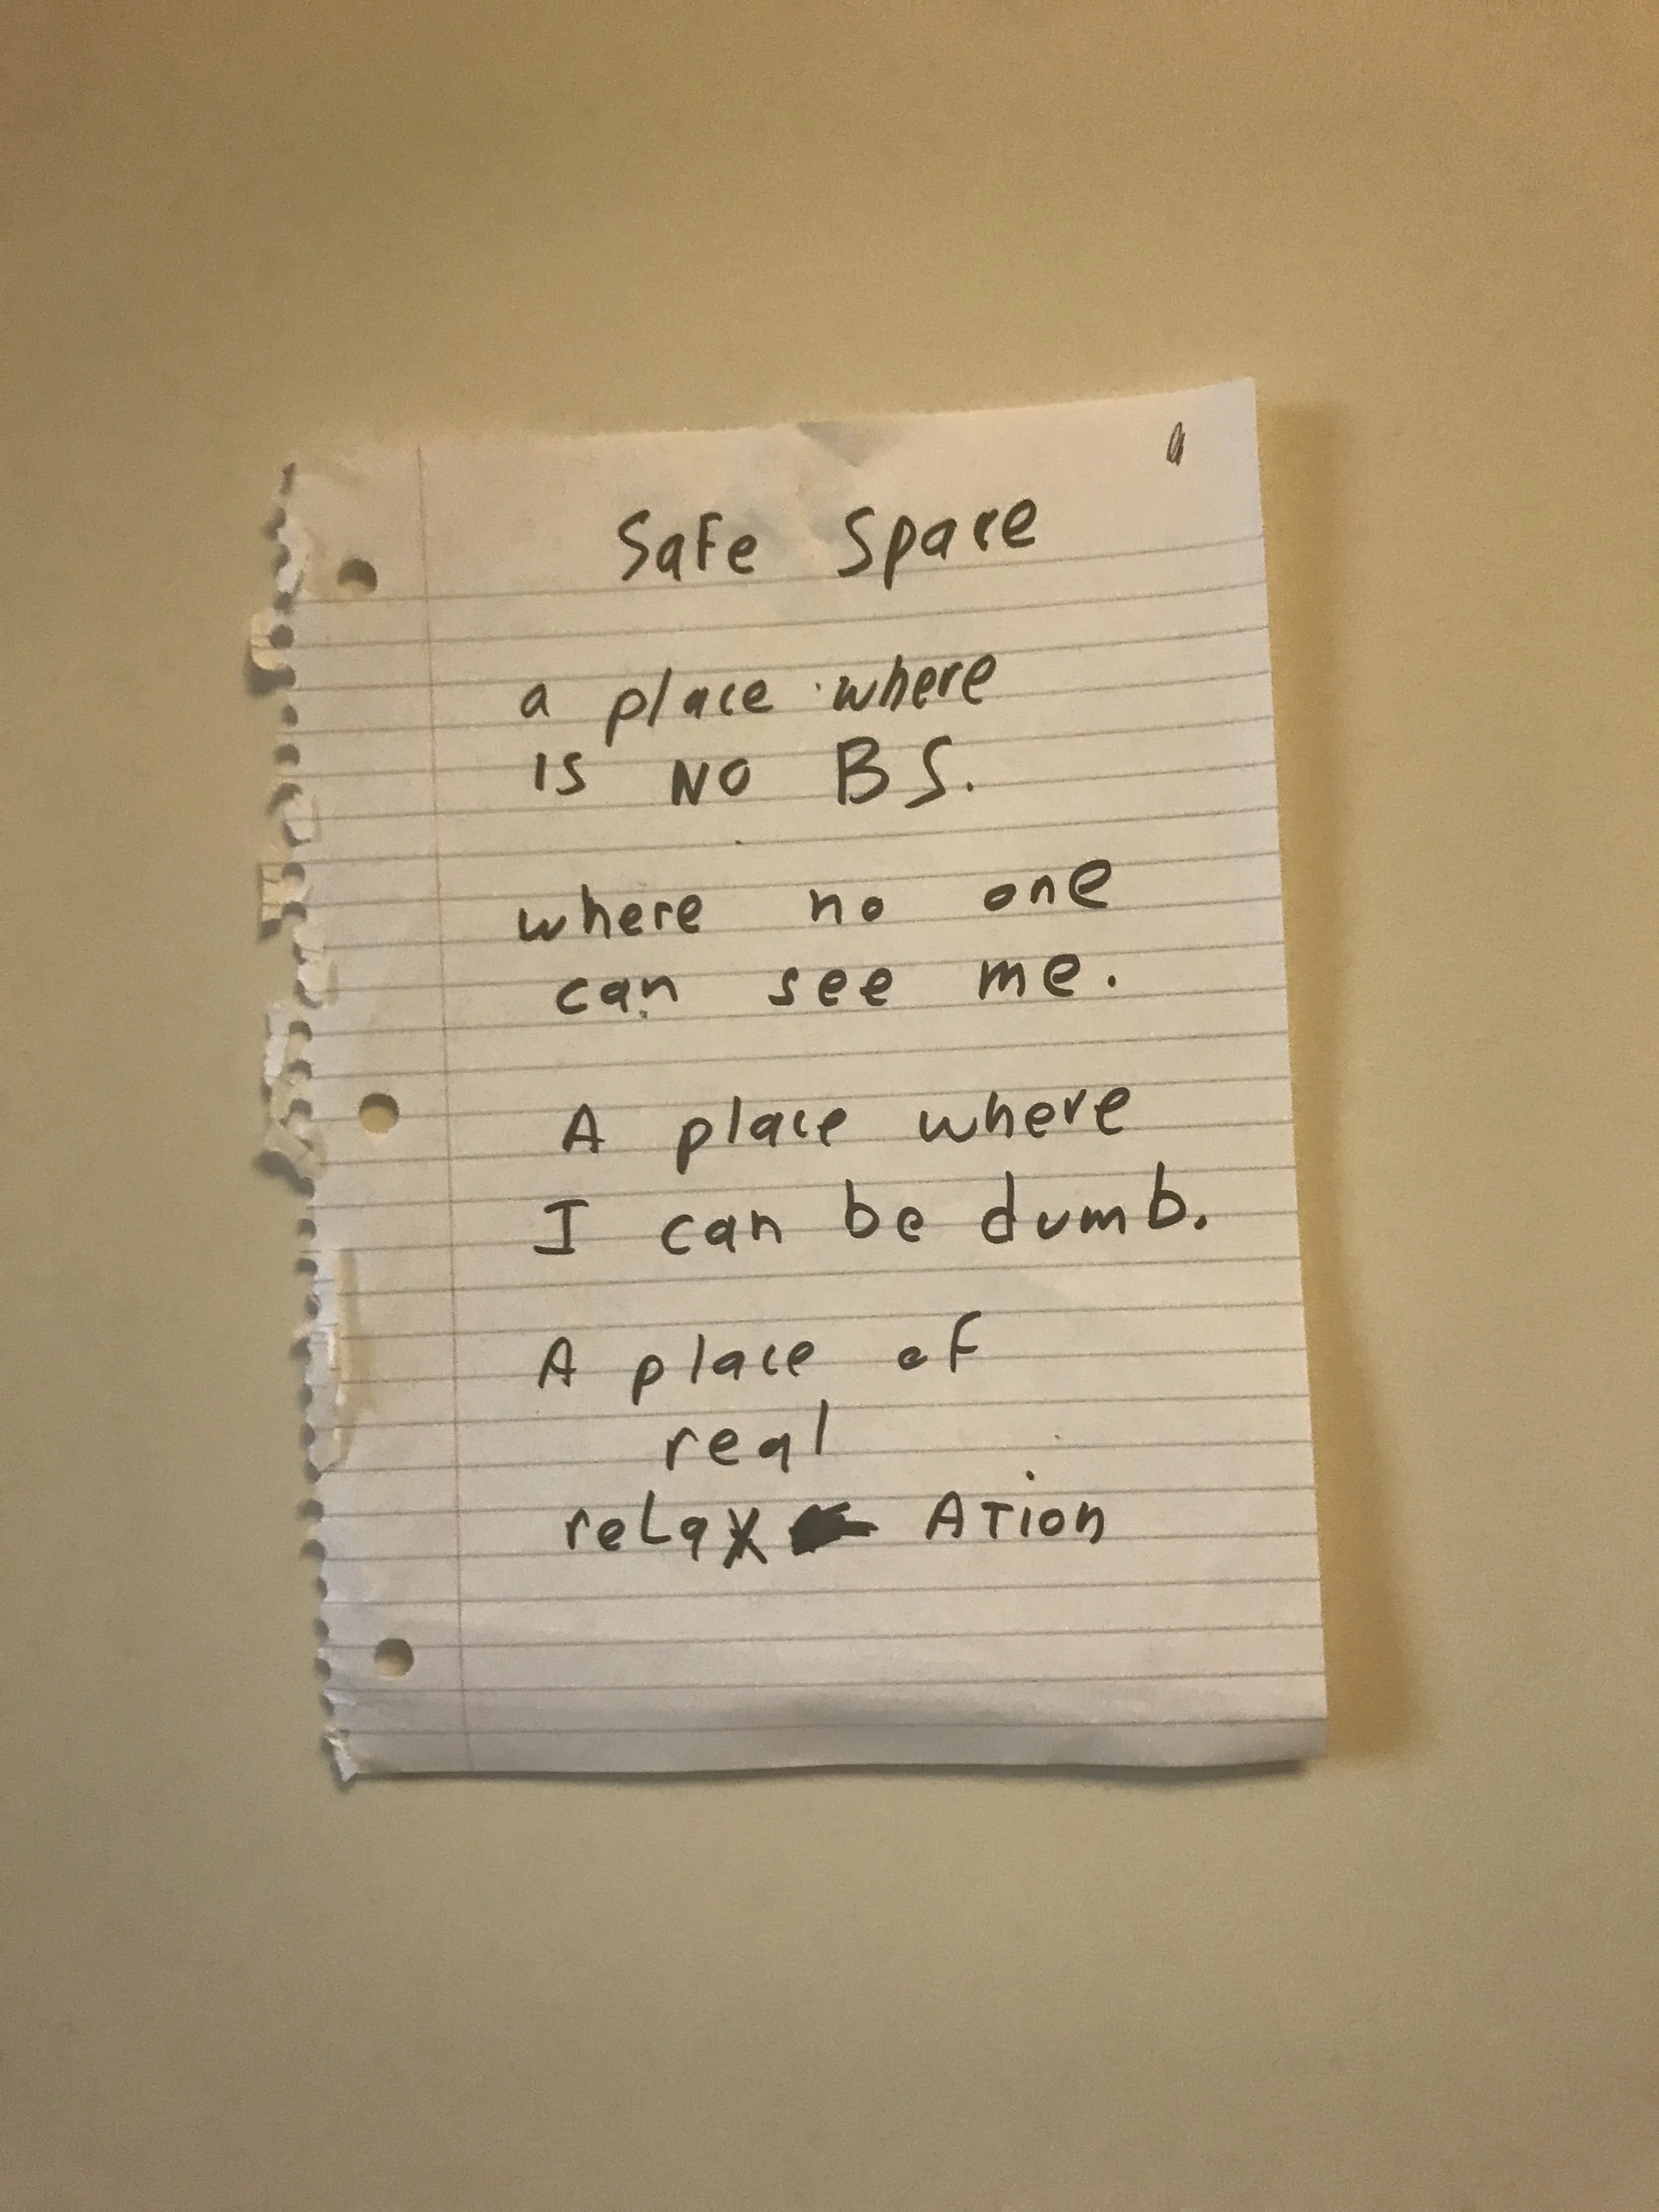 Safe Space
a place where
IS NO BS.
where no one
can see me.
A place where
I can be dumb.
A place of
real
reLax ATion